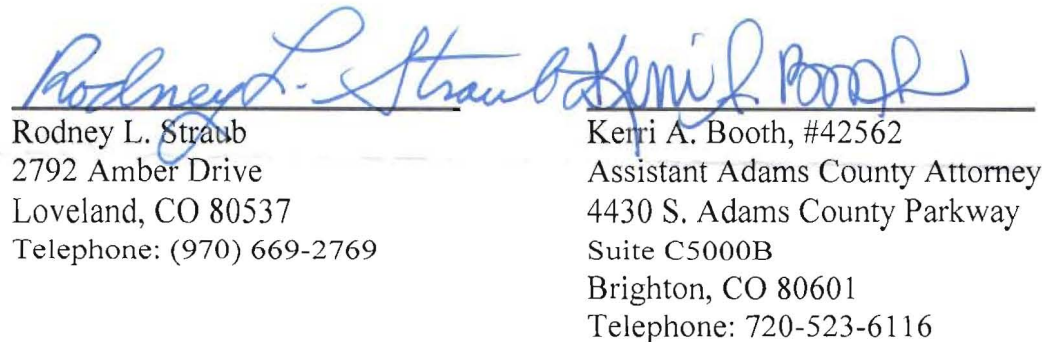 Rodney L. Straub Kerri A Booth
Rodney L. Straub
2792 Amber Drive
Loveland, CO 80537
Telephone: (970) 669-2769
Kerri A. Booth, #42562
Assistant Adams County Attorney
4430 S. Adams County Parkway
Suite C5000B
Brighton, CO 80601
Telephone: 720-523-6116